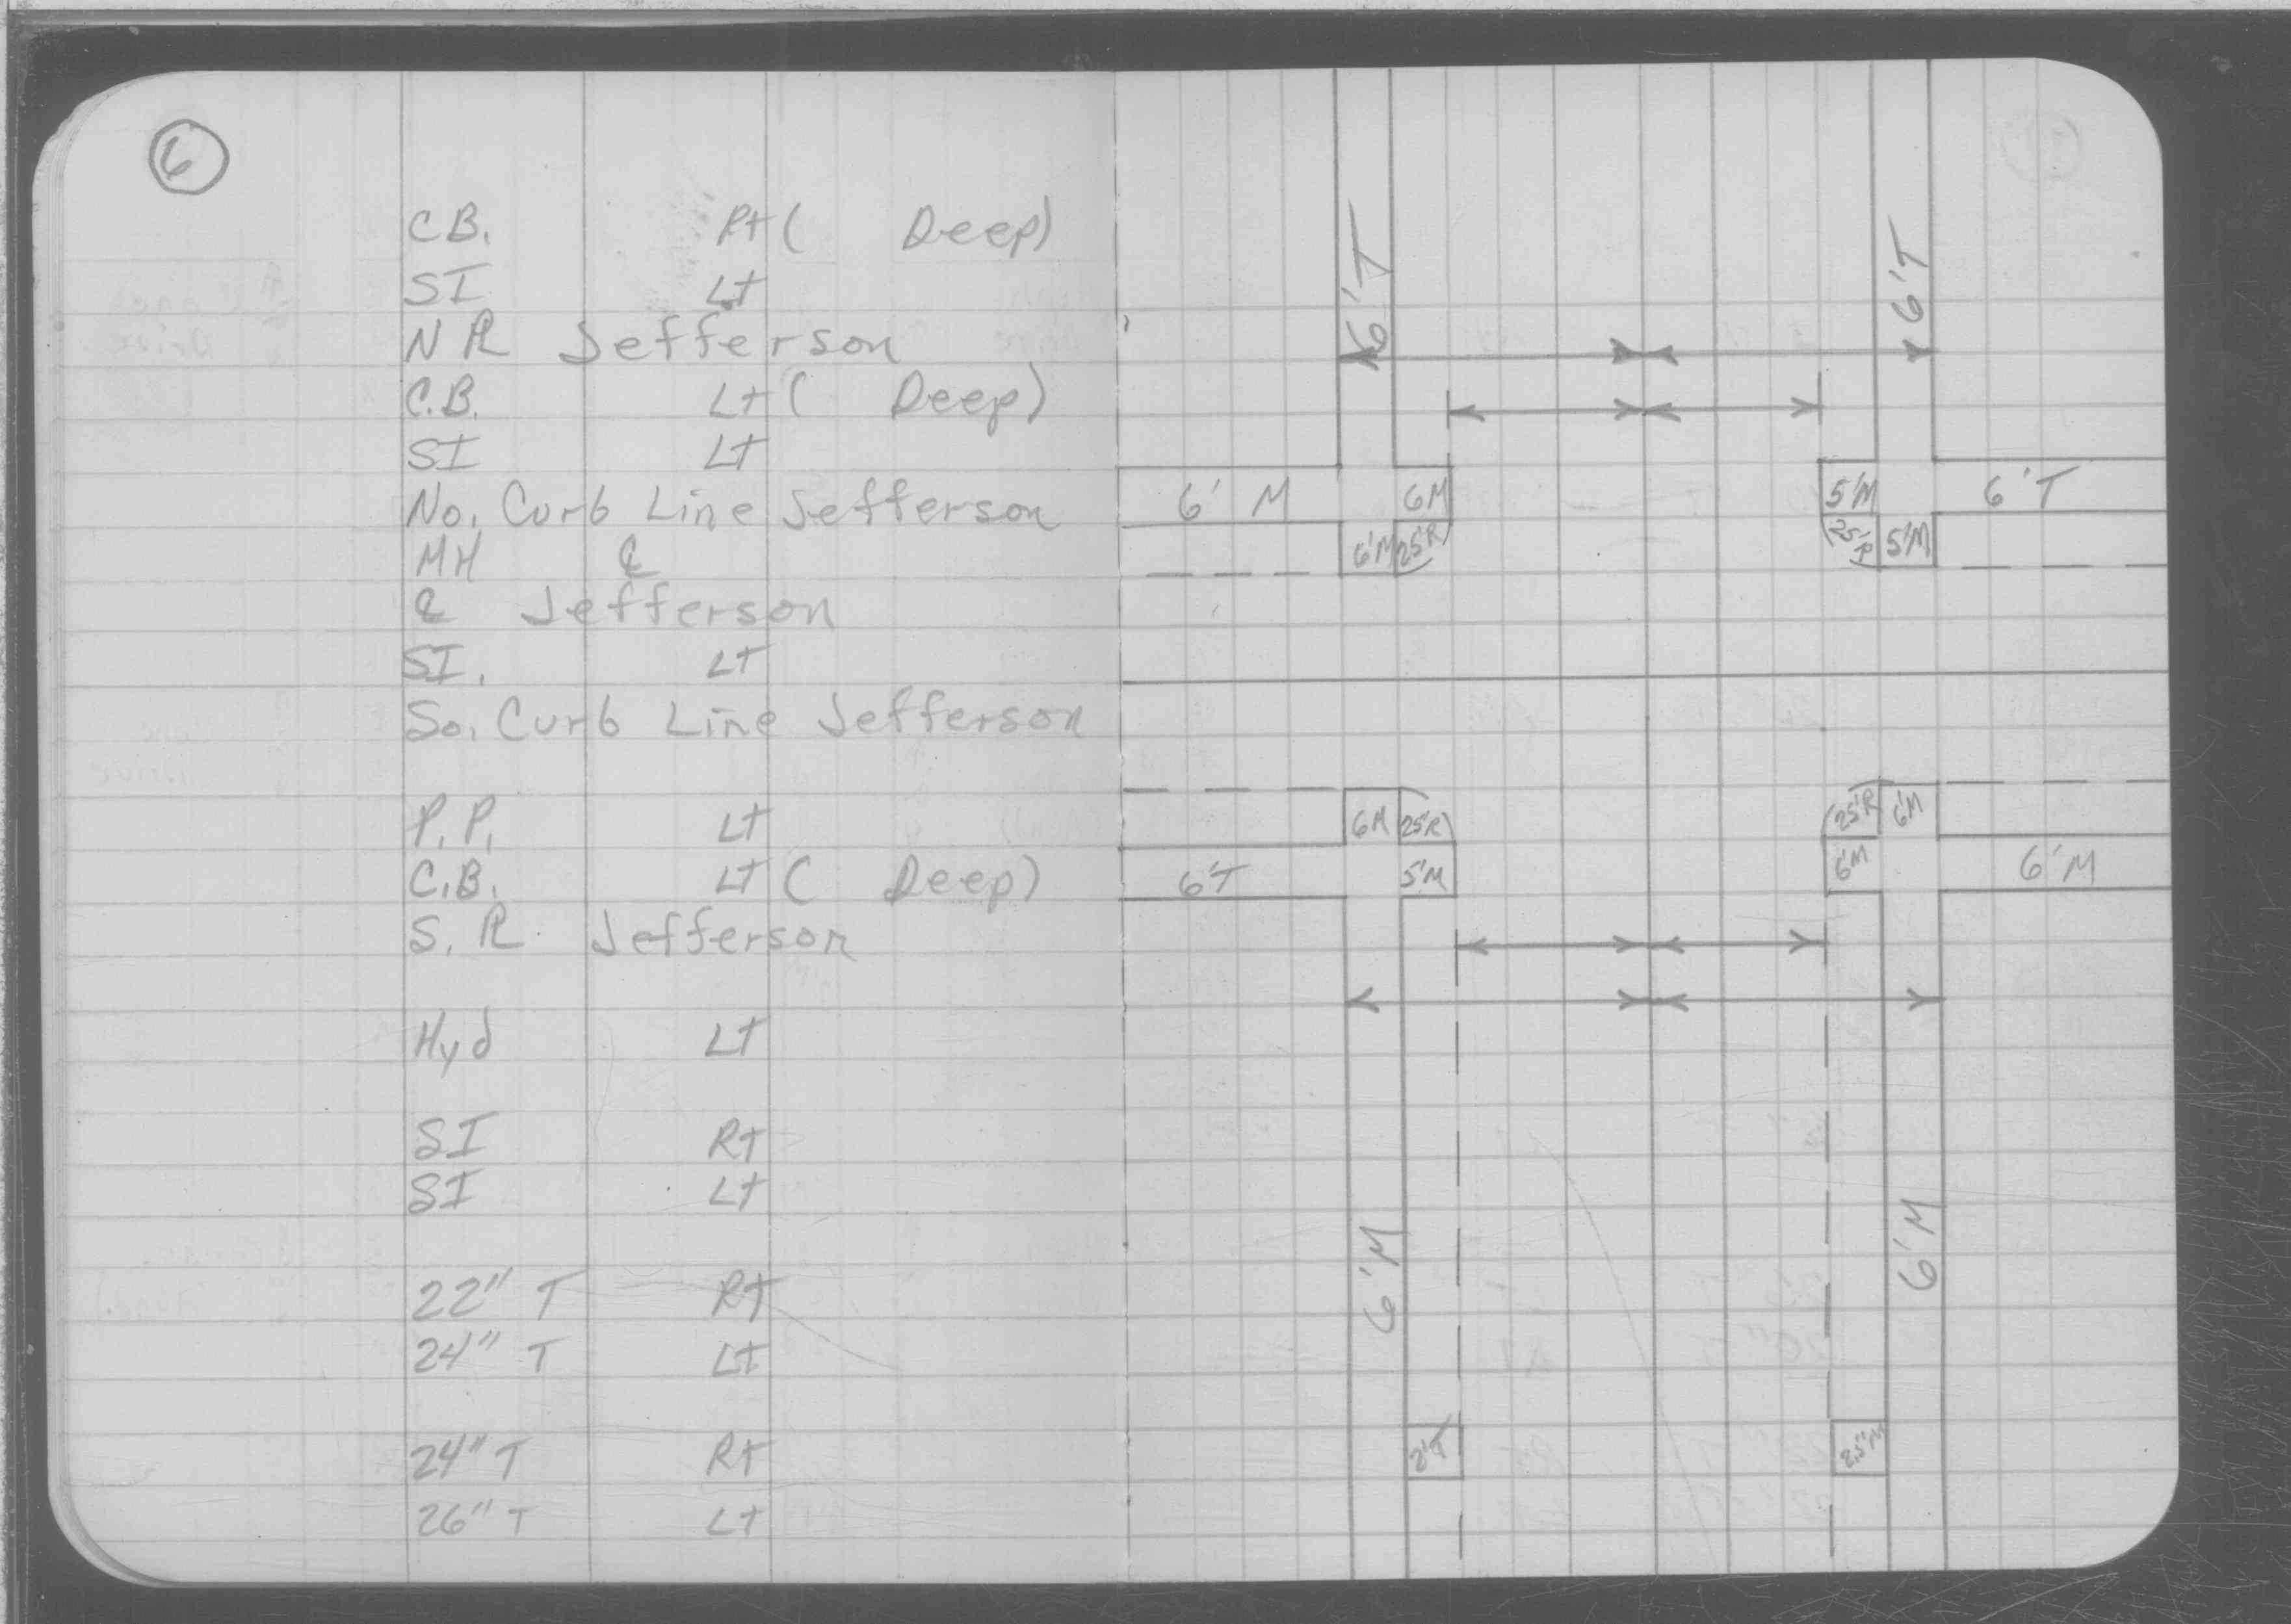 6
C.B. Rt ( Deep)
SI Lt
N PL Jefferson
C.B. Lt ( Deep)
SI Lt
No. Curb Line Jefferson
MH ℄
℄ Jefferson
SI. Lt
So. Curb Line Jefferson
P.P. Lt
C.B. Lt ( Deep)
S. PL Jefferson
Hyd Lt
SI Rt
SI Lt
22" T Rt
24" T Lt
24" T Rt
26" T Lt
6'T 6'T
6' M 6M 5'M 6'T
6'M 25'R 25'R 5'M
6M 25'R 25'R 6'M
6'T 5'M 6'M 6'M
6'M 6'M
2'T 2.5'M